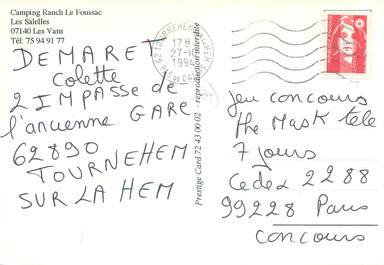 Camping Ranch Le Foussac
Les Salelles
07140 Les Vans
Tél: 75 94 91 77
DEMARET
Colette
2 IMPASSE de
l'ancienne GARE
62890
TOURNEHEM
SUR LA HEM
Prestige Card 72 43 00 02 - reproduction interdite
17 H
27-10
1994
jeu concours
the Mask tele
7 jours
Cedex 2288
99228 Paris
concours